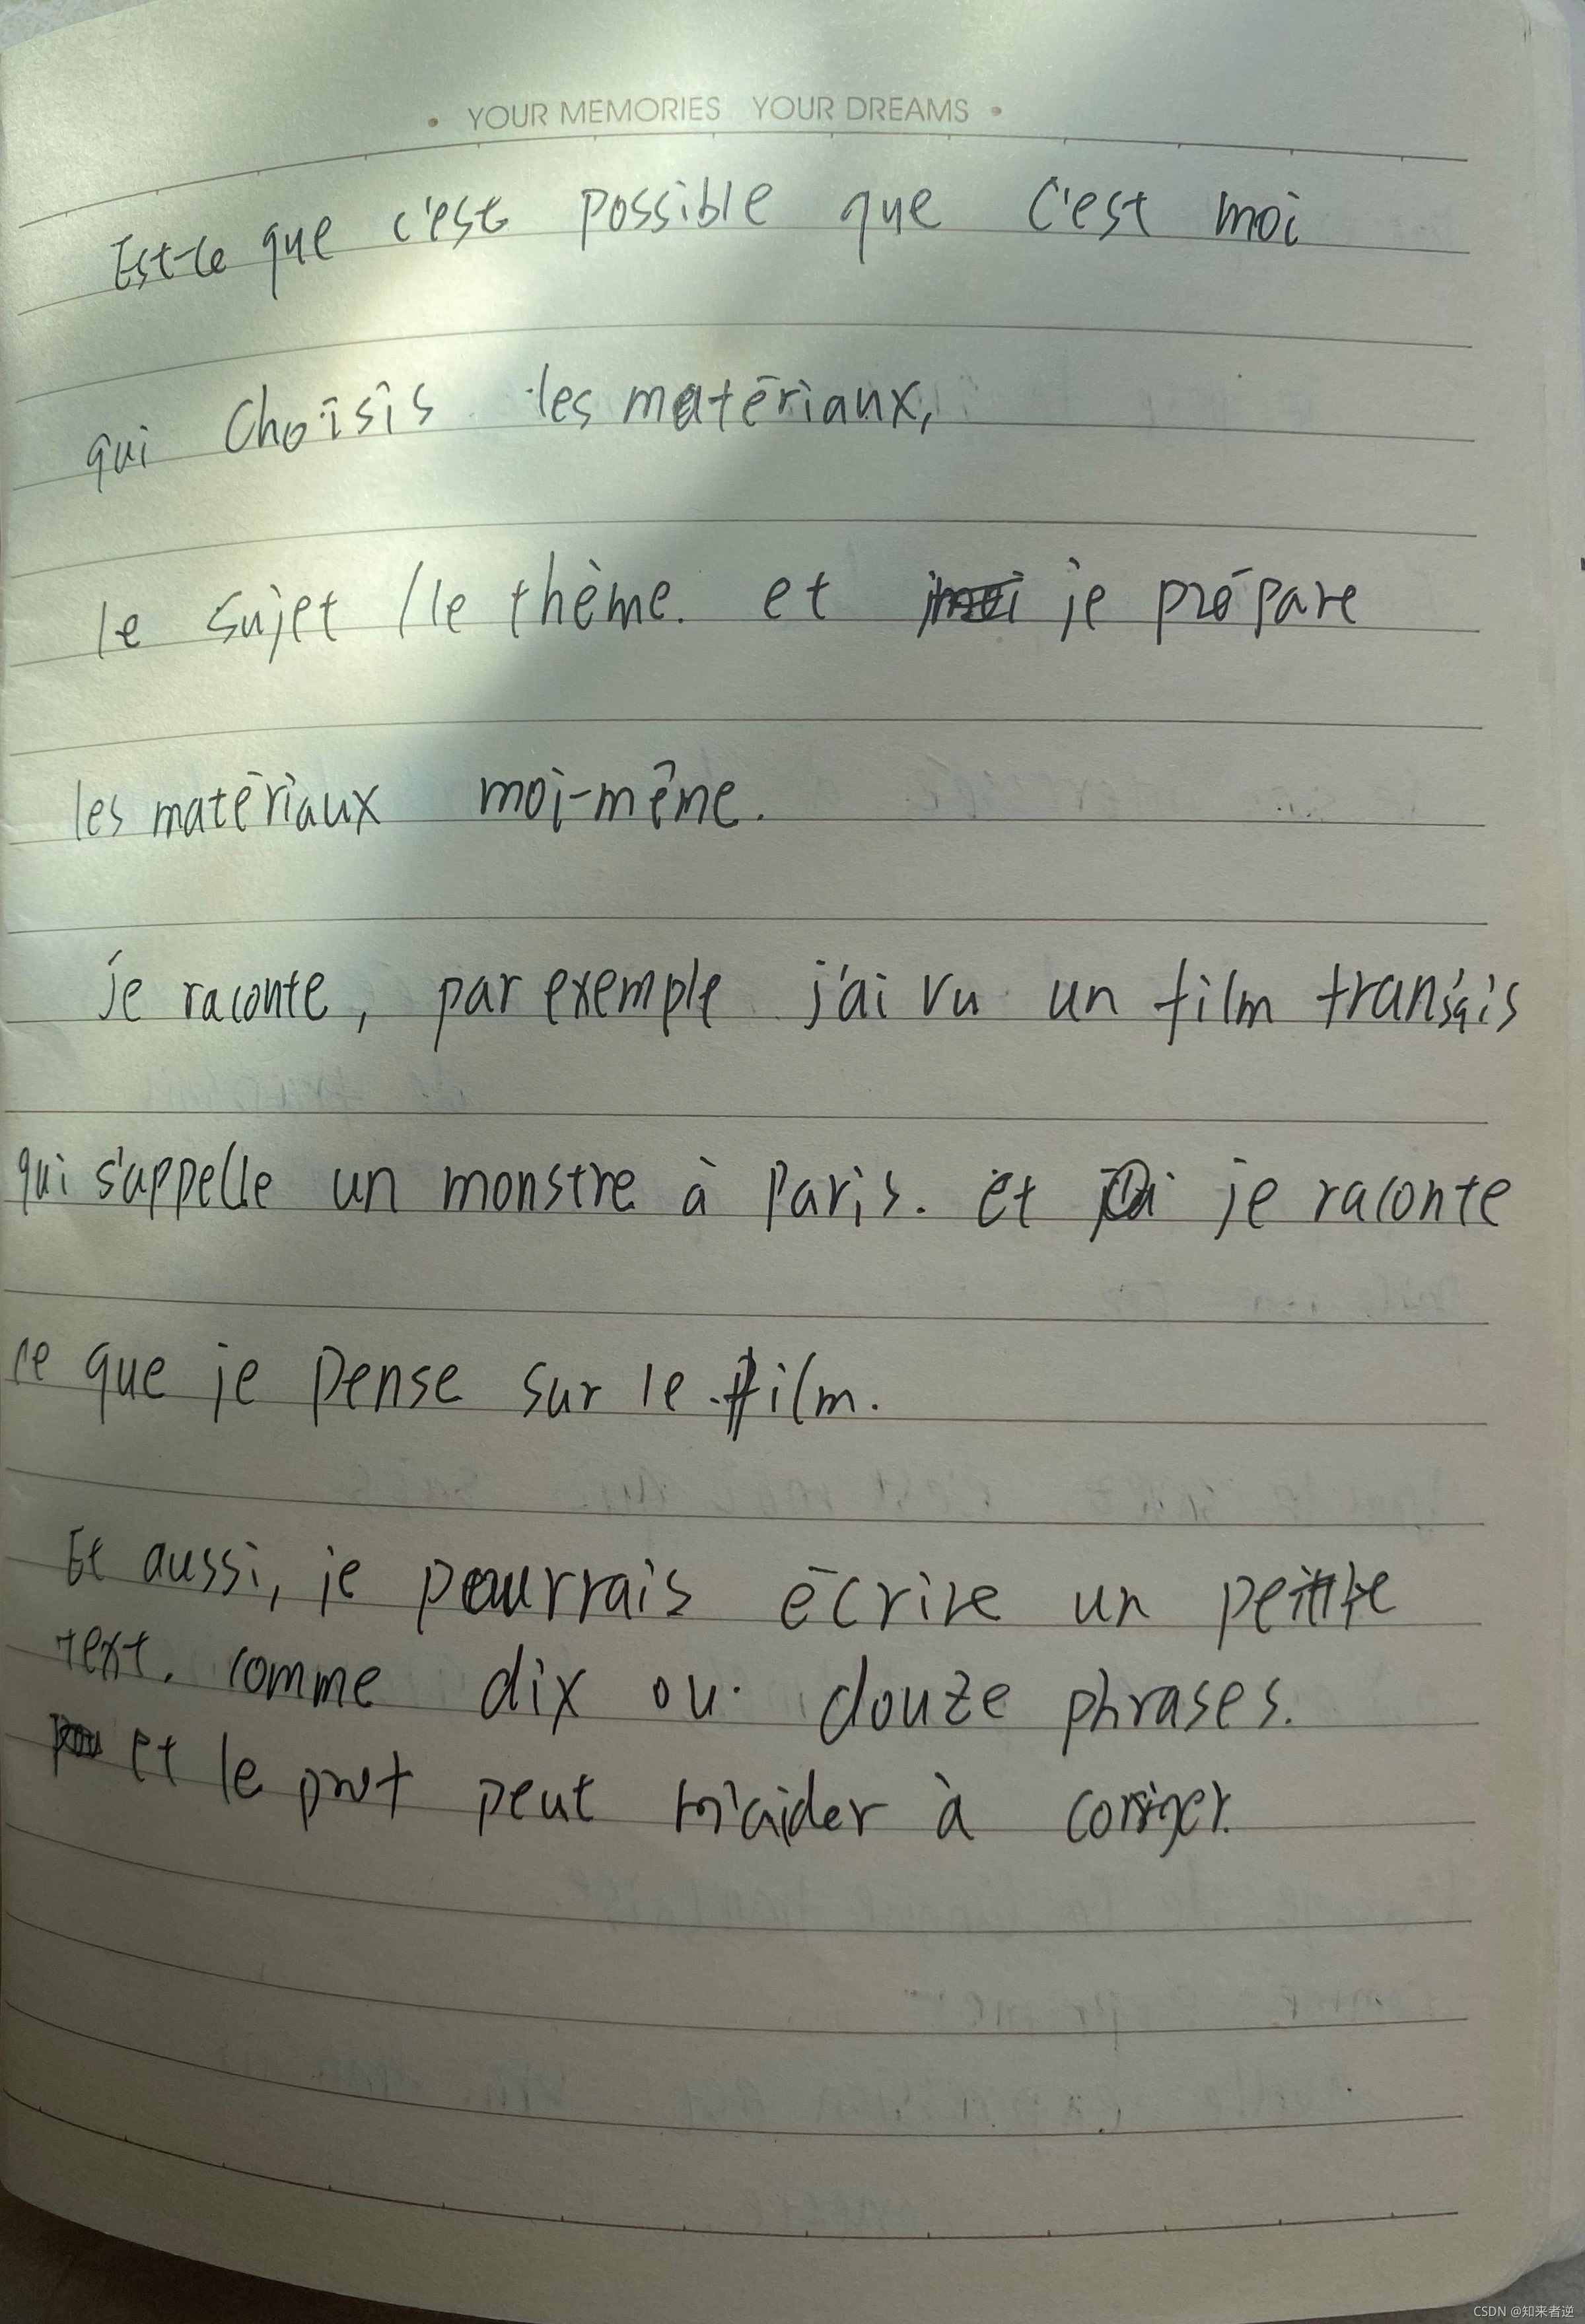 • YOUR MEMORIES YOUR DREAMS •
Est-ce que c'est possible que c'est moi
qui choisis les matériaux,
le sujet / le thème. et je prépare
les matériaux moi-même.
je raconte, par exemple j'ai vu un film français
qui s'appelle un monstre à Paris. et je raconte
ce que je pense sur le film.
Et aussi, je pourrais écrire un petite
text. comme dix ou douze phrases.
et le prof peut m'aider à corriger.
CSDN @知来者逆